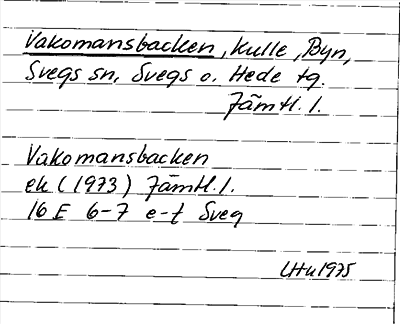 Vakomansbacken, Kulle, Byn,
Svegs sn, Svegs o. Hede tg.
Jämtl. l.
Vakomansbacken
ek (1973) Jämtl. l.
16 E 6-7 e-f Sveg
LHu 1975